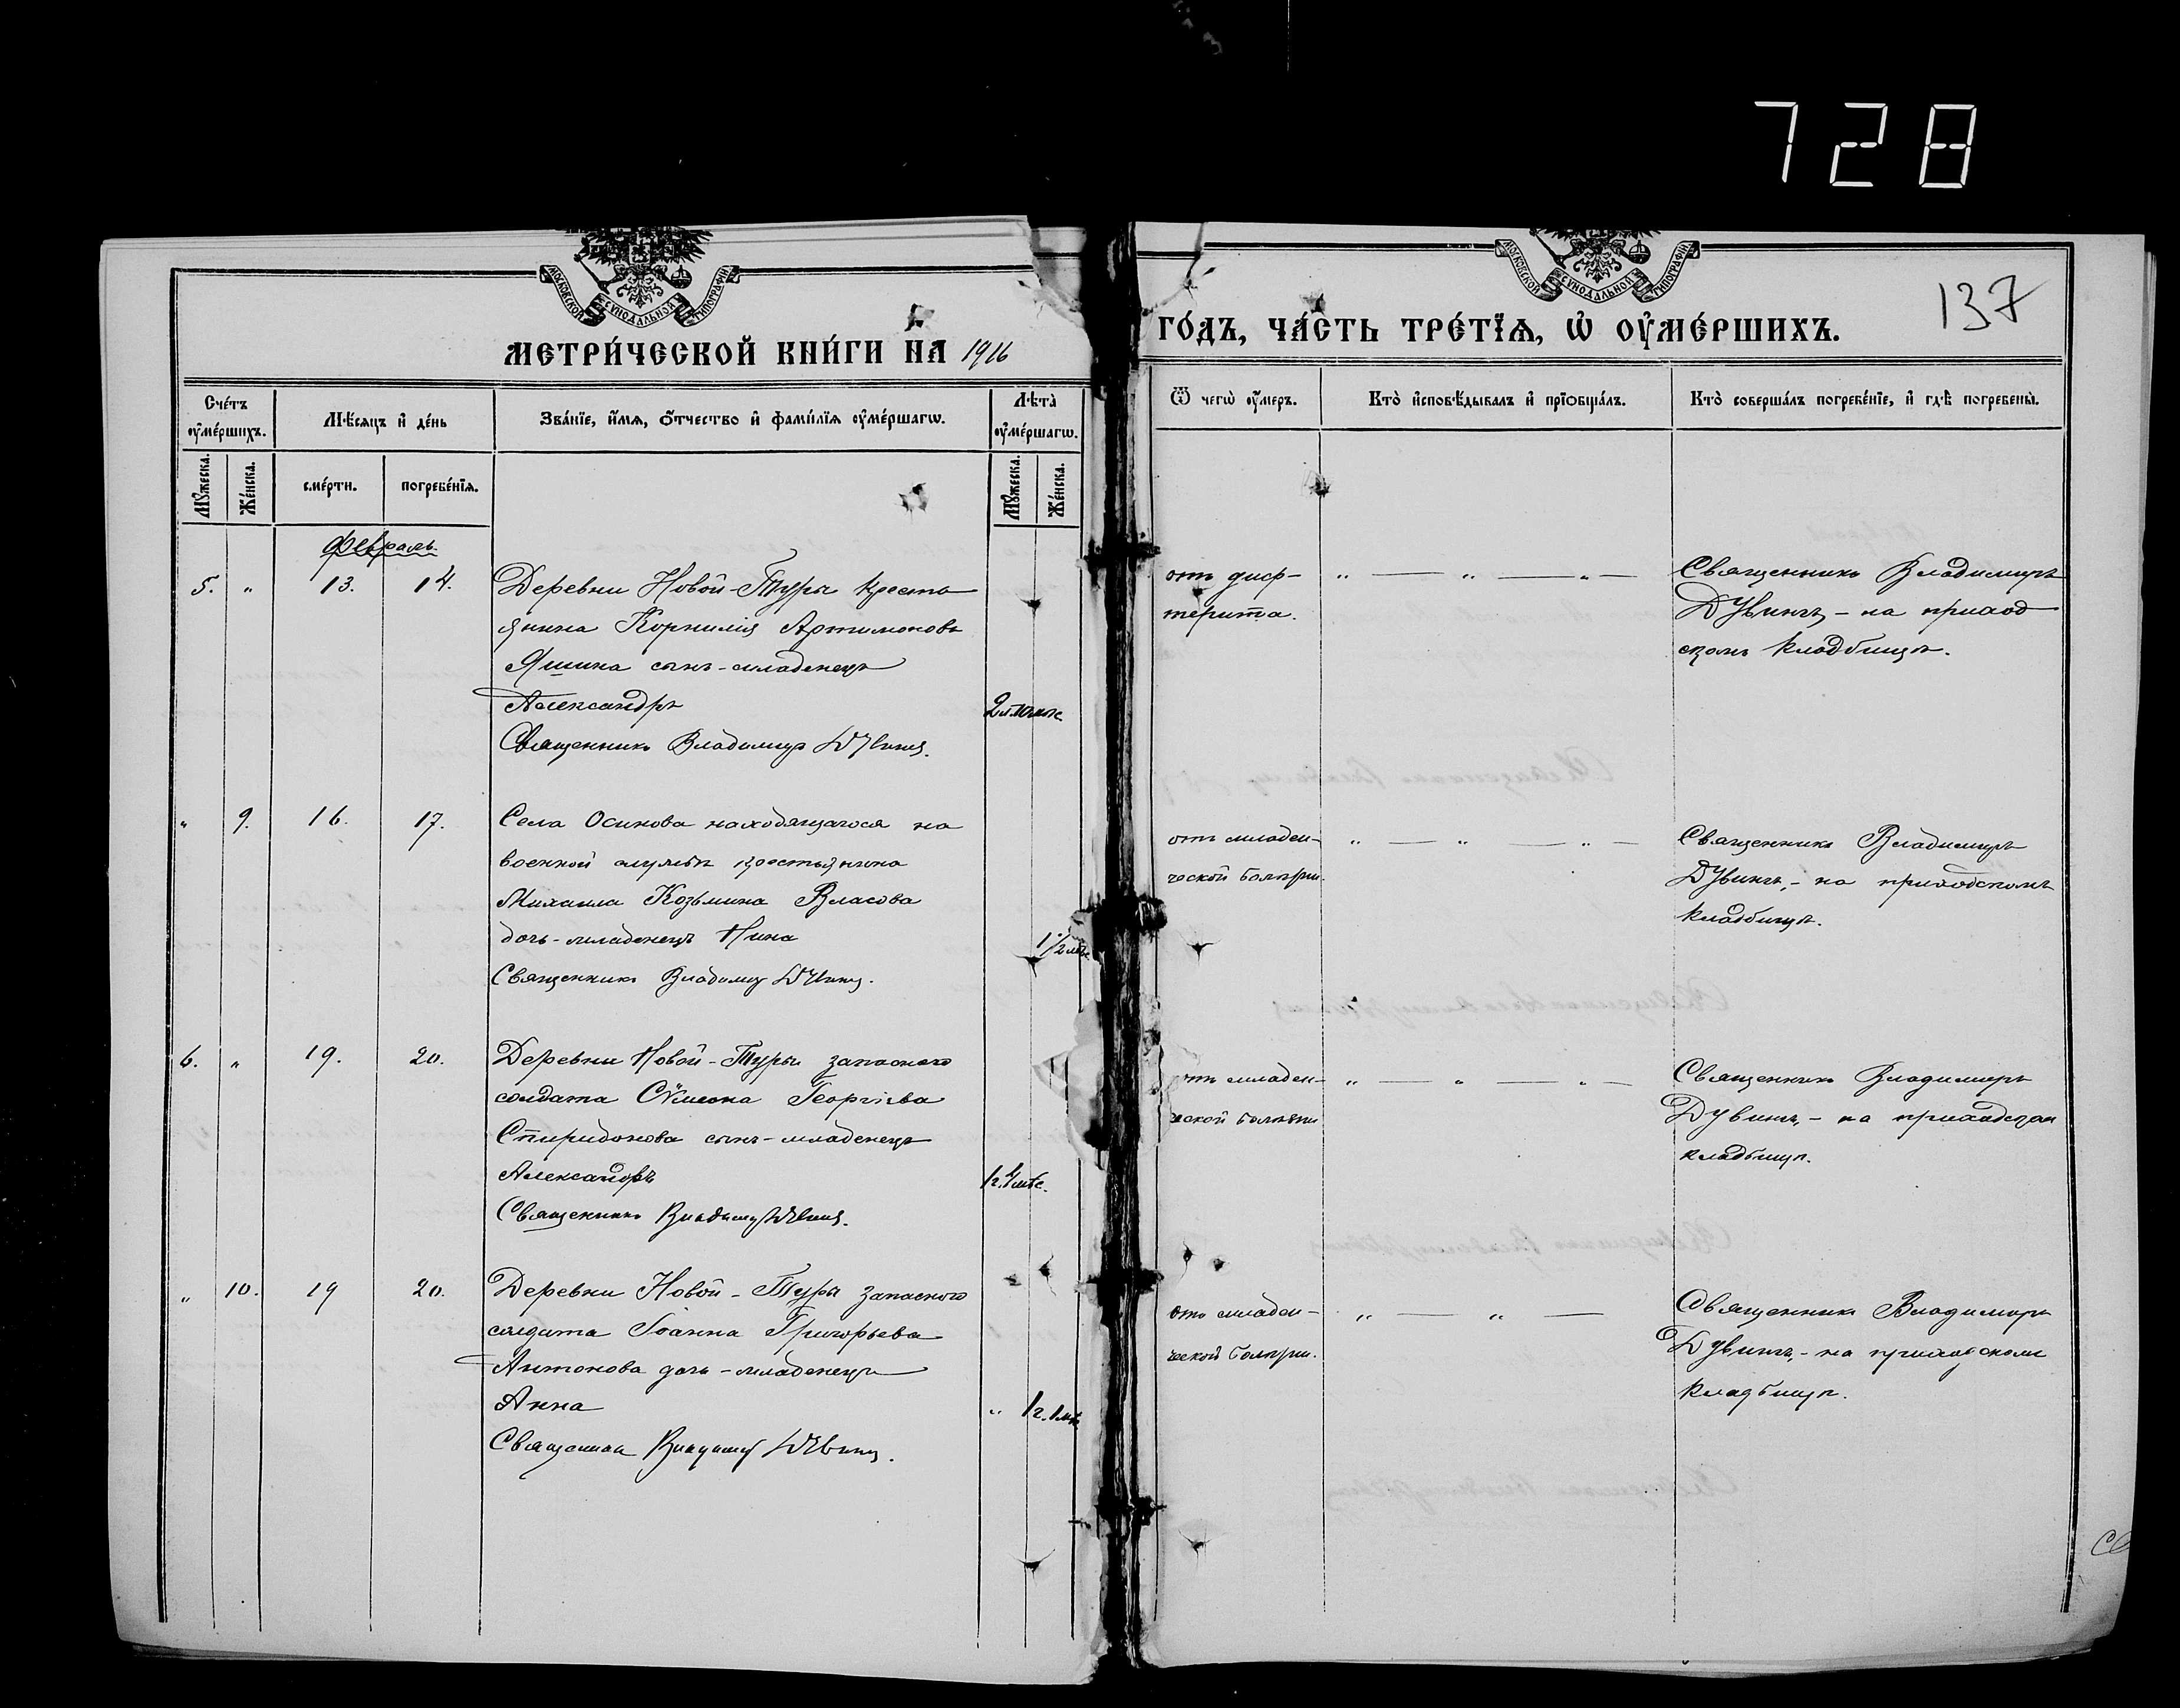 728
МОСКОВСКОЙ СУНОДАЛЬНОЙ ТИПОГРАФІИ
МОСКОВСКОЙ СУНОДАЛЬНОЙ ТИПОГРАФІИ
137
МЕТРИ́ЧЕСКОЙ КНИ́ГИ НА 1916
ГО́ДЪ, ЧА́СТЬ ТРЕ́ТЇѦ, Ѡ҆ ОУ҆МЕ́РШИХЪ.
Сче́тъ оу҆ме́ршихъ.
Мѣ́сяцъ и҆ де́нь
Зва́нїе, и҆́мя, ѻ҆́тчество и҆ фами́лїя оу҆ме́ршагѡ.
Лѣта̀ оу҆ме́ршагѡ.
Ѿ чегѡ̀ оу҆́меръ.
Кто̀ и҆сповѣ́дывалъ и҆ прїѡбща́лъ.
Кто̀ соверша́лъ погребе́нїе, и҆ гдѣ̀ погребены̀.
Мꙋ́жеска.
Же́нска.
сме́рти.
погребе́нїѧ.
Мꙋ́жеска.
Же́нска.
Февраль.
5. " 13. 14. Деревни Новой-Туры кресть
янина Корнилія Артимонова
Яшина сынъ-младенецъ
Александръ
Священникъ Владимиръ Дувинъ.
от диф-
терита.
" — " — " —
Священникъ Владимиръ
Дувинъ - на приход
скомъ кладбищѣ.
" 9. 16. 17. Села Осинова находящагося на
военной службѣ крестьянина
Михаила Козьмина Власова
дочь-младенецъ Нина
1/2 мѣс.
Священникъ Владимиръ Дувинъ.
отъ младен-
ческой болѣзни.
" — " — " —
Священникъ Владимиръ
Дувинъ, - на приходскомъ
кладбищѣ.
6. " 19. 20. Деревни Новой-Туры запаснаго
солдата Сѵмеона Георгіева
Спиридонова сынъ-младенецъ
Александръ
1 г. 4 мѣс.
Священникъ Владимиръ Дувинъ.
отъ младен-
ческой болѣзни
" — " — " —
Священникъ Владимиръ
Дувинъ, - на приходском
кладбищѣ.
" 10. 19 20. Деревни Новой-Туры запаснаго
солдата Іоанна Григорьева
Антонова дочь-младенецъ
Анна
" 1 г. 1 мѣс
Священник Владимир Дувинъ.
отъ младен-
ческой болѣзни.
" — " —
Священникъ Владимиръ
Дувинъ, - на приходскомъ
кладбищѣ.